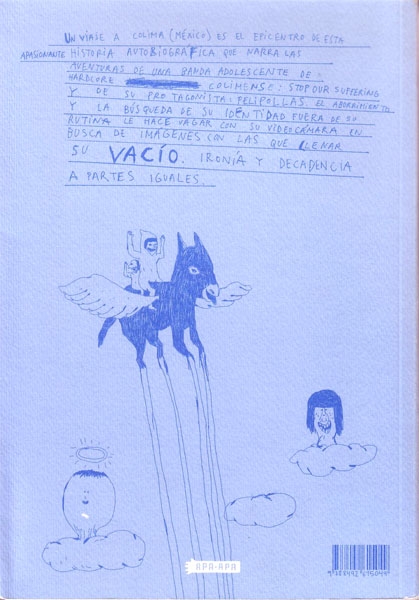 UN VIAJE A COLIMA (MÉXICO) ES EL EPICENTRO DE ESTA
APASIONANTE HISTORIA AUTOBIOGRÁFICA QUE NARRA LAS
AVENTURAS DE UNA BANDA ADOLESCENTE DE
HARDCORE COLIMENSE: STOP OUR SUFFERING
Y DE SU PROTAGONISTA: PELIPOLLAS. EL ABURRIMIENTO
Y LA BÚSQUEDA DE SU IDENTIDAD FUERA DE SU
RUTINA LE HACE VAGAR CON SU VIDEOCÁMARA EN
BUSCA DE IMÁGENES CON LAS QUE LLENAR
SU VACÍO. IRONÍA Y DECADENCIA
A PARTES IGUALES.
APA-APA